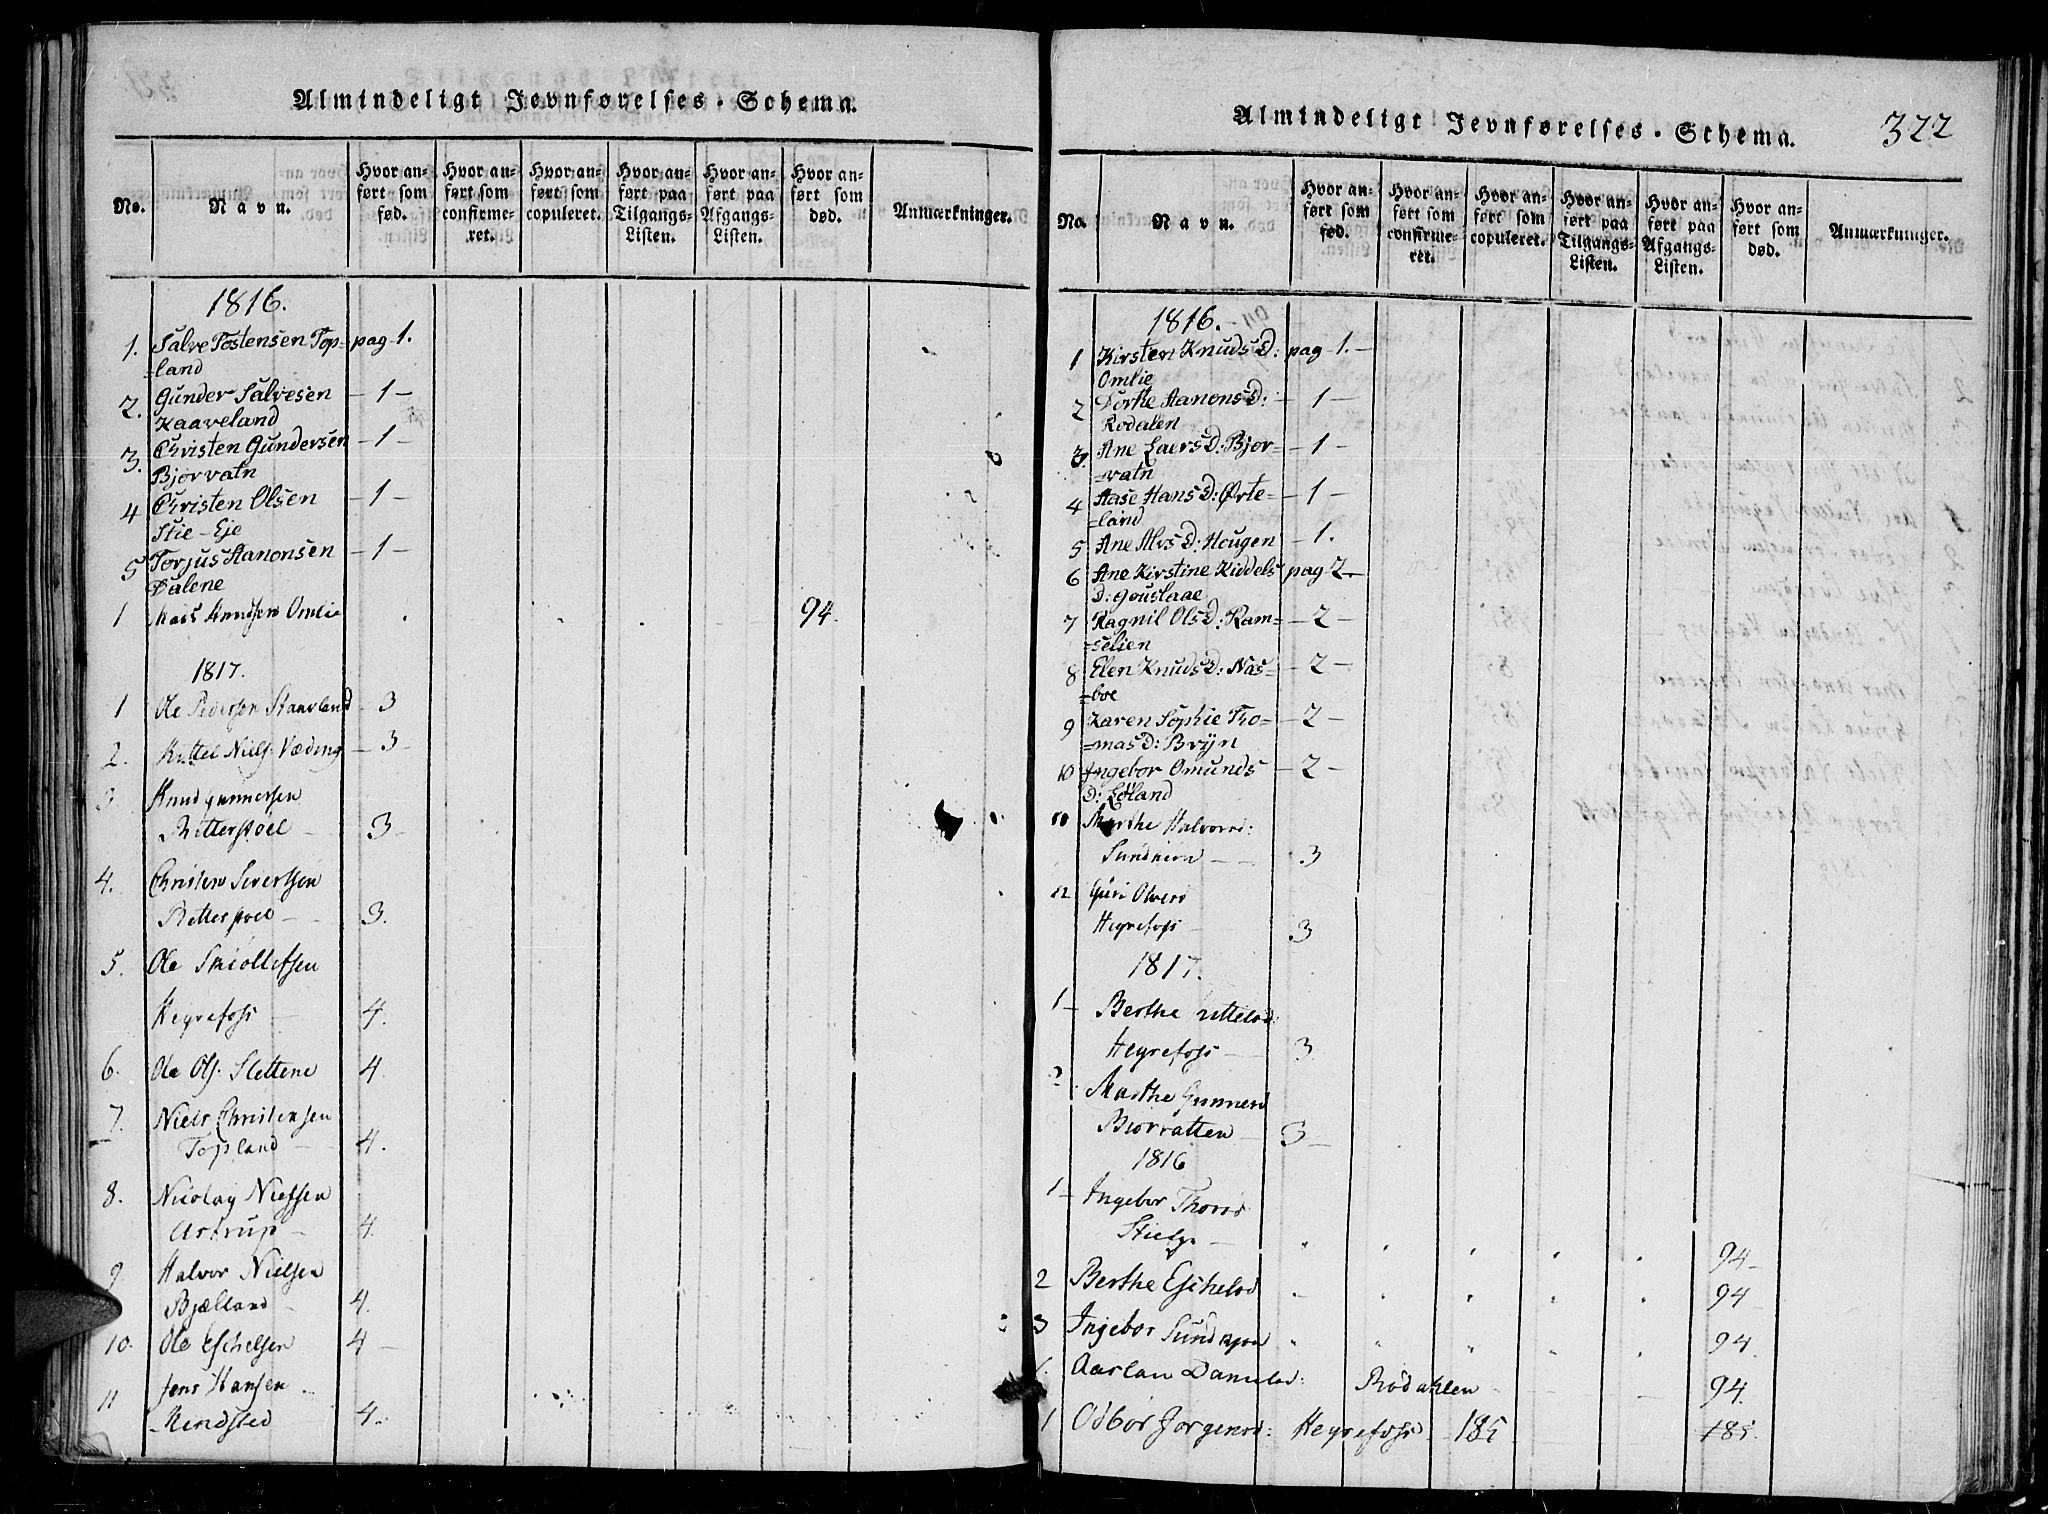 Almindeligt Jevnførelses-Schema.
No.
Navn.
Hvor an-
ført som
fød.
Hvor an-
ført som
confirme-
ret.
Hvor an-
ført som
copuleret.
Hvor an-
ført paa
Tilgangs-
Listen.
Hvor an-
ført paa
Afgangs-
Listen.
Hvor an-
ført som
død.
Anmærkninger.
1816.
1. Salve Tostensen Top- pag 1.
=land
2. Gunder Salvesen - 1 -
Kaaveland
3. Christen Gundersen - 1 -
Bjorvatn
4 Christen Olsen - 1 -
Stie-Eje
5 Torjus Aanonsen - 1 -
Dalene
1 Knudsen Omlie 94.
1817.
1 Ole Pedersen Staavland - 3
2. Kittel Niels: Væding - 3
3 Knud Gunnersen
Ritterstöel - 3 -
4. Christen Sivertsen
Retterstoel - 3.
5. Ole Skiollefsen
Hegrefoss - 4.
6. Ole Ols: Slettene 4.
7. Niels Christensen
Topland - 4.
8. Nicolay Nielsen
Astrup - 4.
9. Halvor Nielsen
Bjælland - 4.
10. Ole Eschelsen 4 -
11 Jens Hansen
Mendsted 4.
Almindeligt Jevnførelses-Schema.
322
No.
Navn.
Hvor an-
ført som
fød.
Hvor an-
ført som
confirme-
ret.
Hvor an-
ført som
copuleret.
Hvor an-
ført paa
Tilgangs-
Listen.
Hvor an-
ført paa
Afgangs-
Listen.
Hvor an-
ført som
død.
Anmærkninger.
1816.
1 Kirsten Knuds D: pag 1. -
Omlie
2 Dorthe Aanons D: - 1 -
Rodalen
3. Ane Laers D: Bjor- - 1 -
=vatn
4 Aase Hans D: Ørte- - 1 -
=land
5 Ane Alvs D: Hougen - 1.
6 Ane Kirstine Kiddels pag 2. -
D: Gouslaae
7 Ragnil Ols D: Ram= - 2 -
=selien
8 Elen Knuds D: Nas- - 2 -
=boe
9 Karen Sophie Tho- - 2 -
=mas D: Bryn
10 Ingebor Omunds - 2 -
D: Løland
11 Marthe Halvors:
Sundheim - 3
12 Guri Olvers
Hegrefoss - 3
1817.
1 - Berthe Kittelsd:
Hegrefoss - 3
2 Marthe Gunnersd
Biorvatten - 3 -
1816
1 - Ingebor Thorsd
Stieje - 94 -
2 Berthe Eschelsd 94
3 Ingebor Sundkjen 94
4. Aaslau Danielsd: Rodahlen 94.
1 Odbor Jorgensd: Hegrefoss 185 185.